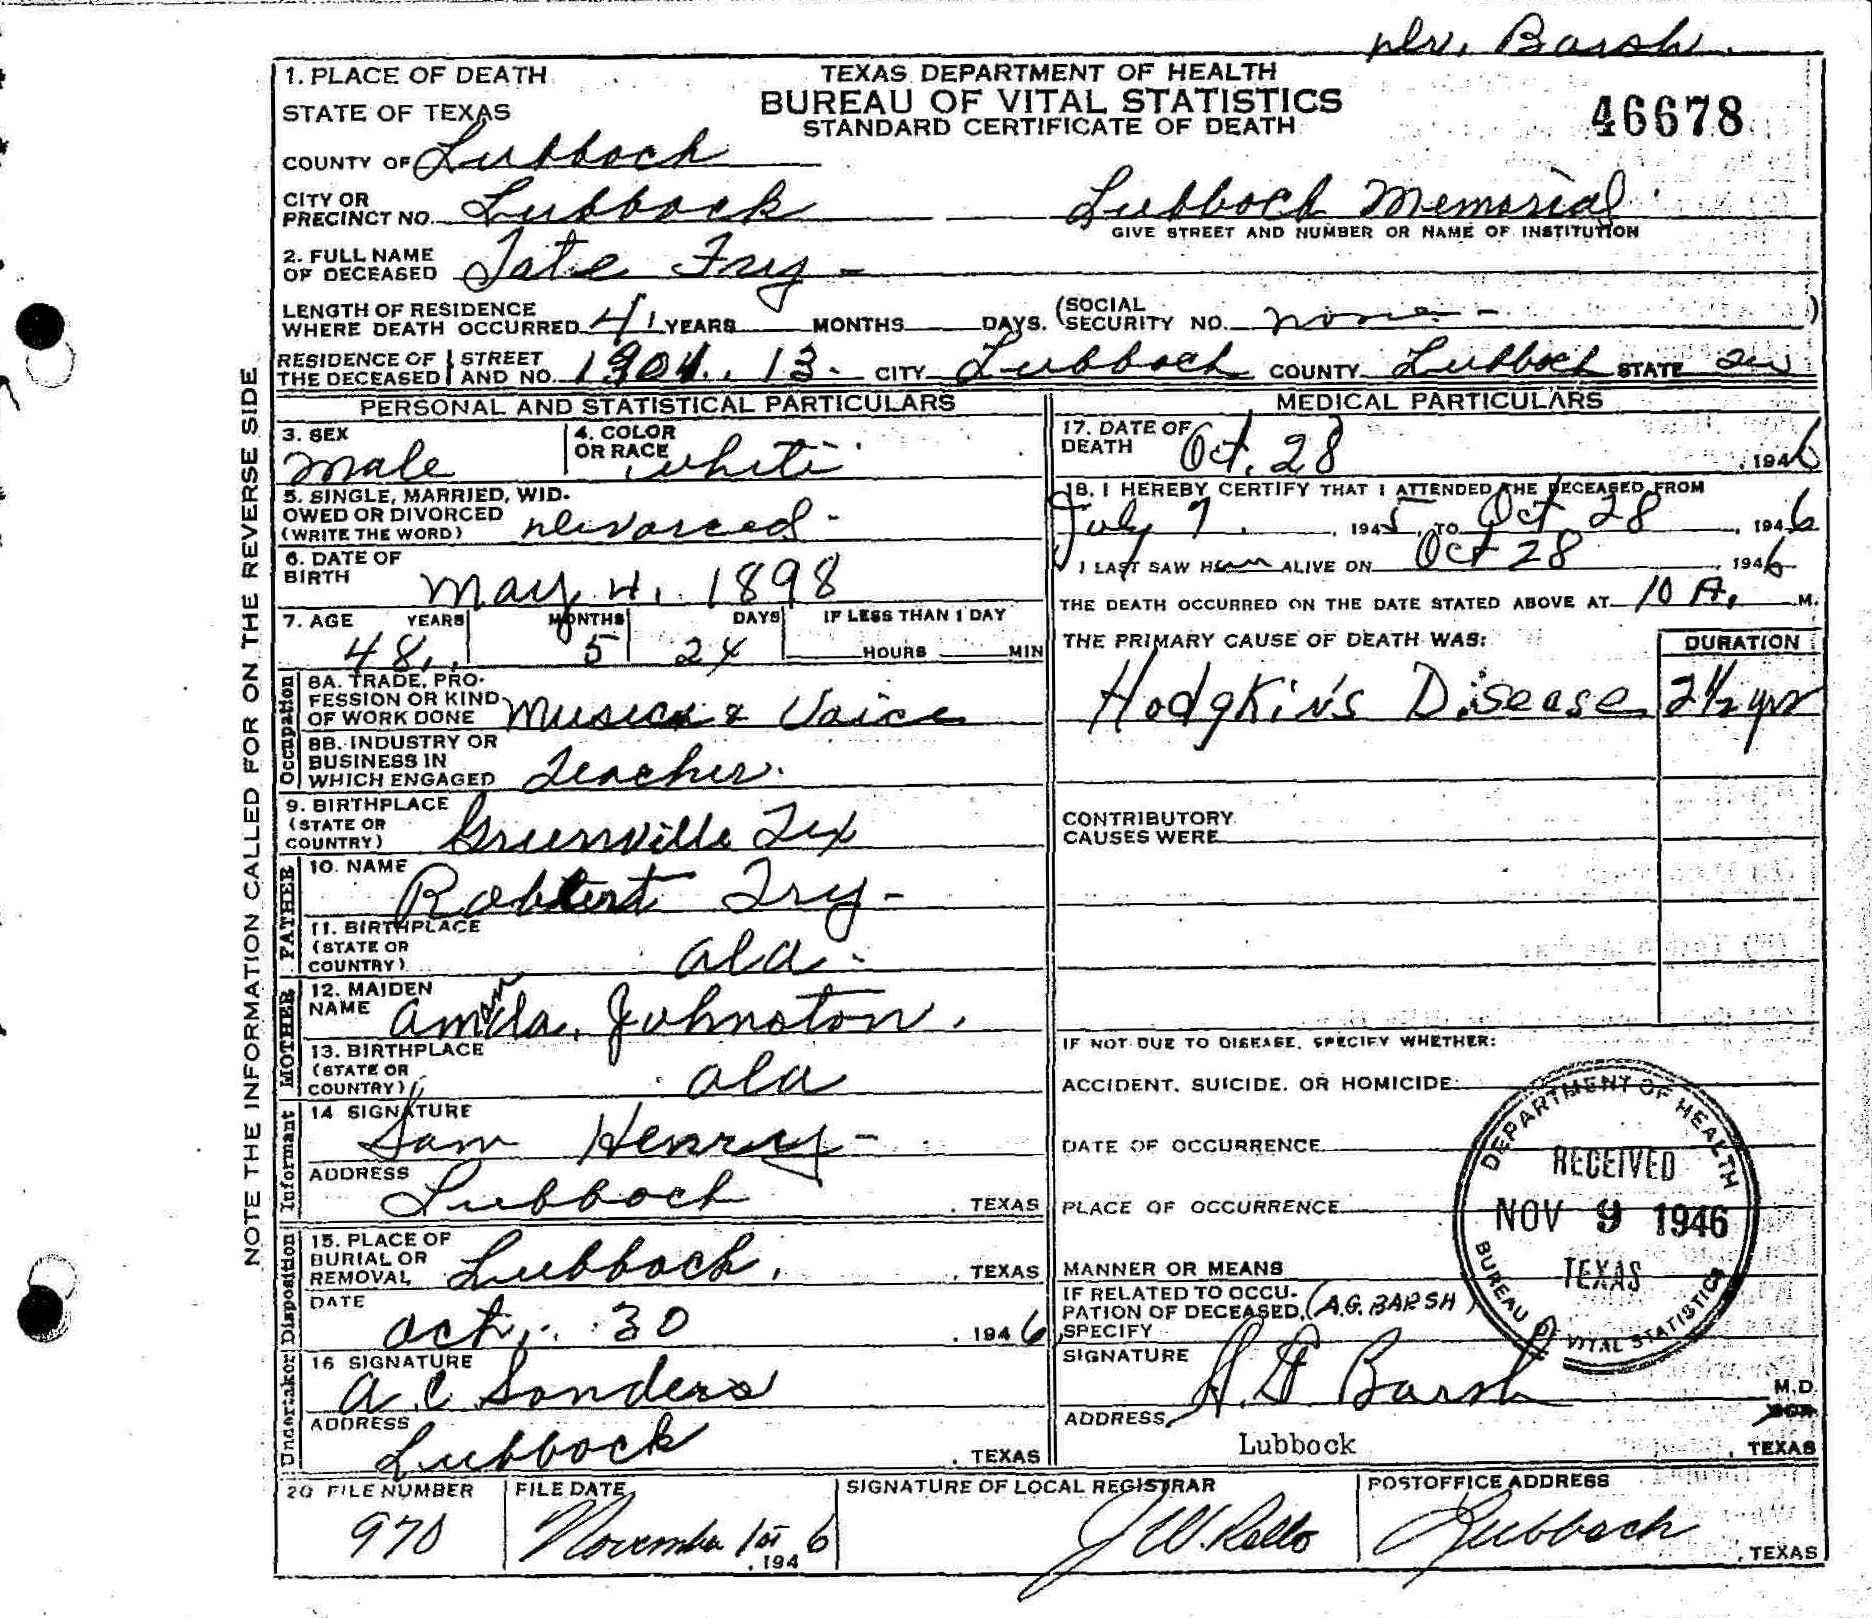 Dr. Barsh.
1. PLACE OF DEATH
STATE OF TEXAS
TEXAS DEPARTMENT OF HEALTH
BUREAU OF VITAL STATISTICS
STANDARD CERTIFICATE OF DEATH
46678
COUNTY OF Lubbock
CITY OR PRECINCT NO. Lubbock Lubbock Memorial
GIVE STREET AND NUMBER OR NAME OF INSTITUTION
2. FULL NAME OF DECEASED Tate Fry -
LENGTH OF RESIDENCE WHERE DEATH OCCURRED 41 YEARS MONTHS DAYS. (SOCIAL SECURITY NO. none - )
RESIDENCE OF THE DECEASED STREET AND NO. 1904. 13. CITY Lubbock COUNTY Lubbock STATE
PERSONAL AND STATISTICAL PARTICULARS
3. SEX Male
4. COLOR OR RACE White
5. SINGLE, MARRIED, WIDOWED OR DIVORCED (WRITE THE WORD) Divorced -
6. DATE OF BIRTH May 4, 1898
7. AGE YEARS MONTHS DAYS IF LESS THAN 1 DAY
48 5 24 HOURS MIN
Occupation
8A. TRADE, PROFESSION OR KIND OF WORK DONE & Voice
8B. INDUSTRY OR BUSINESS IN WHICH ENGAGED Teacher.
9. BIRTHPLACE (STATE OR COUNTRY) Greenville Tex
FATHER
10. NAME Robert Fry -
11. BIRTHPLACE (STATE OR COUNTRY) Ala.
MOTHER
12. MAIDEN NAME Johnston.
13. BIRTHPLACE (STATE OR COUNTRY) Ala
Informant
14 SIGNATURE Sam Henry -
ADDRESS Lubbock, TEXAS
Disposition
15. PLACE OF BURIAL OR REMOVAL Lubbock, TEXAS
DATE Oct. 30, 1946
Undertaker
16 SIGNATURE A. C Sanders
ADDRESS Lubbock, TEXAS
MEDICAL PARTICULARS
17. DATE OF DEATH Oct. 28, 1946
18. I HEREBY CERTIFY THAT I ATTENDED THE DECEASED FROM
July 7, 1945, TO Oct 28, 1946
I LAST SAW HIM ALIVE ON Oct 28, 1946
THE DEATH OCCURRED ON THE DATE STATED ABOVE AT 10 A. M.
THE PRIMARY CAUSE OF DEATH WAS: DURATION
Hodgkin's Disease 2½ yrs
CONTRIBUTORY CAUSES WERE
IF NOT DUE TO DISEASE, SPECIFY WHETHER:
ACCIDENT, SUICIDE, OR HOMICIDE
DATE OF OCCURRENCE
PLACE OF OCCURRENCE
MANNER OR MEANS
IF RELATED TO OCCUPATION OF DECEASED, SPECIFY (A.G. BARSH)
SIGNATURE A. G Barsh M.D.
ADDRESS Lubbock, TEXAS
DEPARTMENT OF HEALTH
RECEIVED
NOV 9 1946
TEXAS
BUREAU OF VITAL STATISTICS
20 FILE NUMBER 970
FILE DATE November 1st, 1946
SIGNATURE OF LOCAL REGISTRAR J W.
POSTOFFICE ADDRESS Lubbock, TEXAS
NOTE THE INFORMATION CALLED FOR ON THE REVERSE SIDE